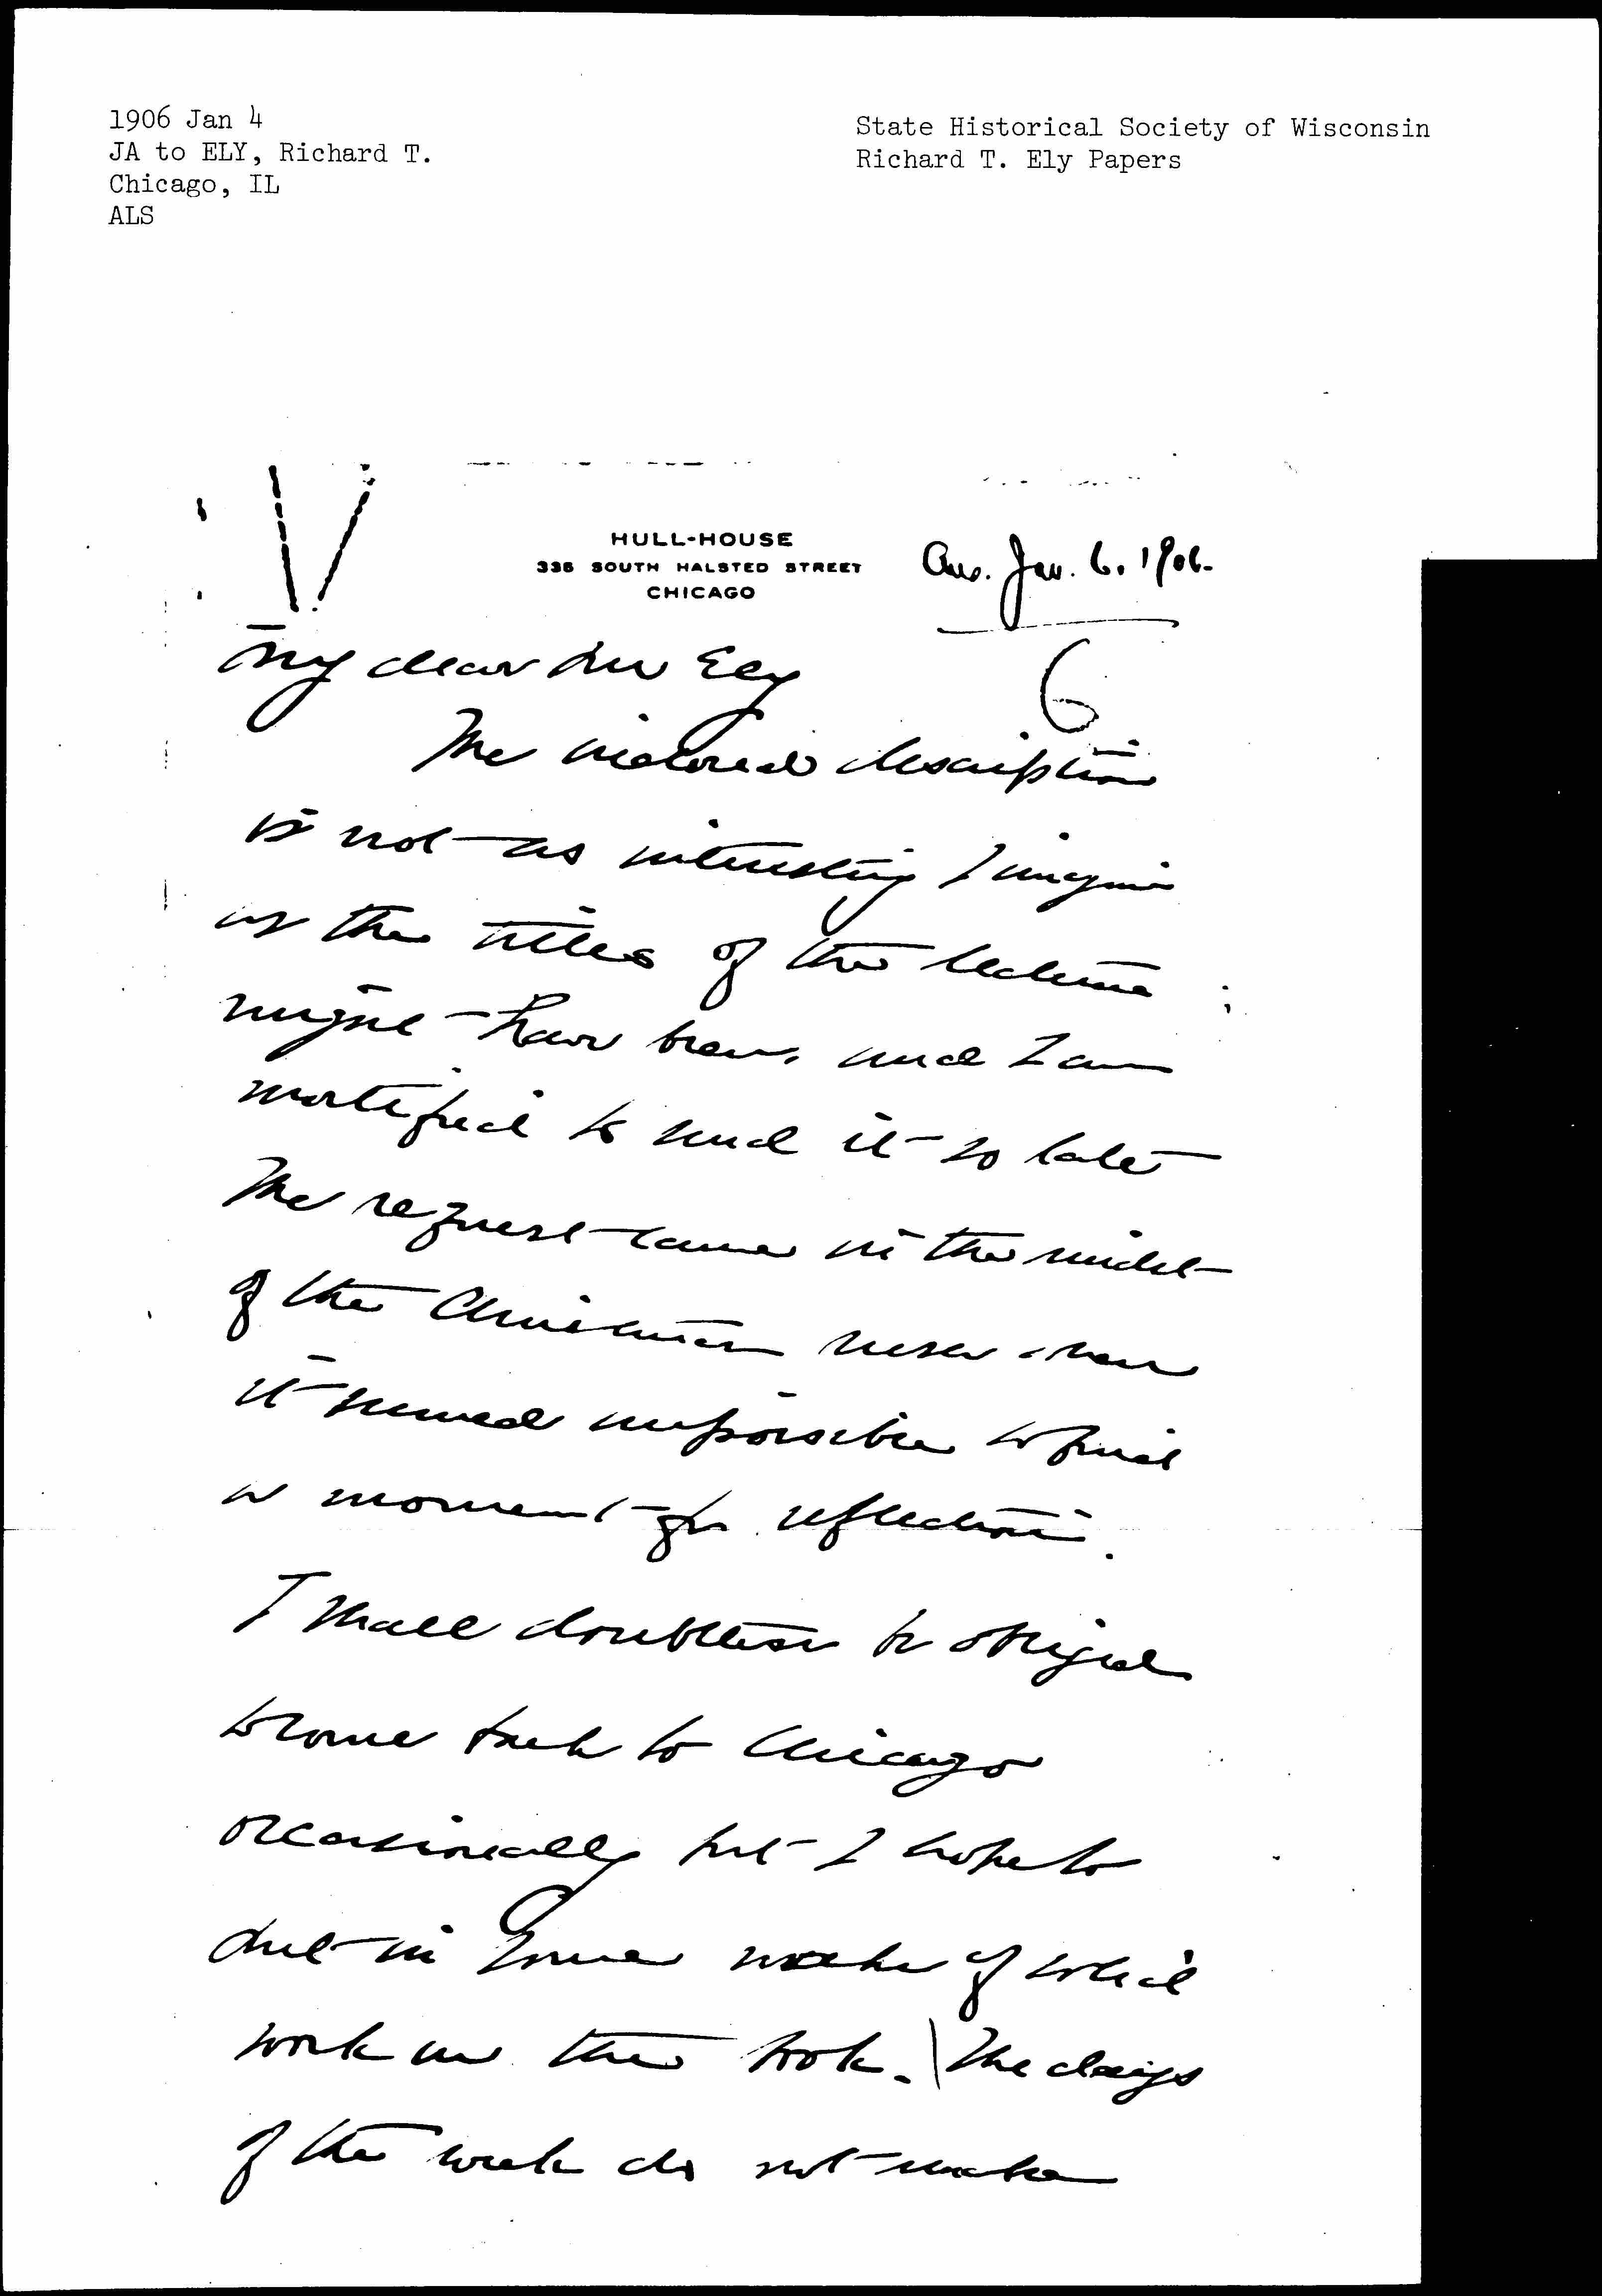 1906 Jan 4
JA to ELY, Richard T.
Chicago, IL
ALS
State Historical Society of Wisconsin
Richard T. Ely Papers
HULL-HOUSE
335 SOUTH HALSTED STREET
CHICAGO
Ans. Jan. 6. 1906.
6
My dear Mr Ely
The inclosed description
is not as interesting I imagine
as the titles of the lectures
might have been, and I am
mortified to send it so late
The request came in the midst
of the Christmas
it seemed impossible to find
a moment for reflection.
I shall doubtless be obliged
to come back to Chicago
occasionally but I hope to
put in some weeks of solid
work on the book. The days
of the week do not make